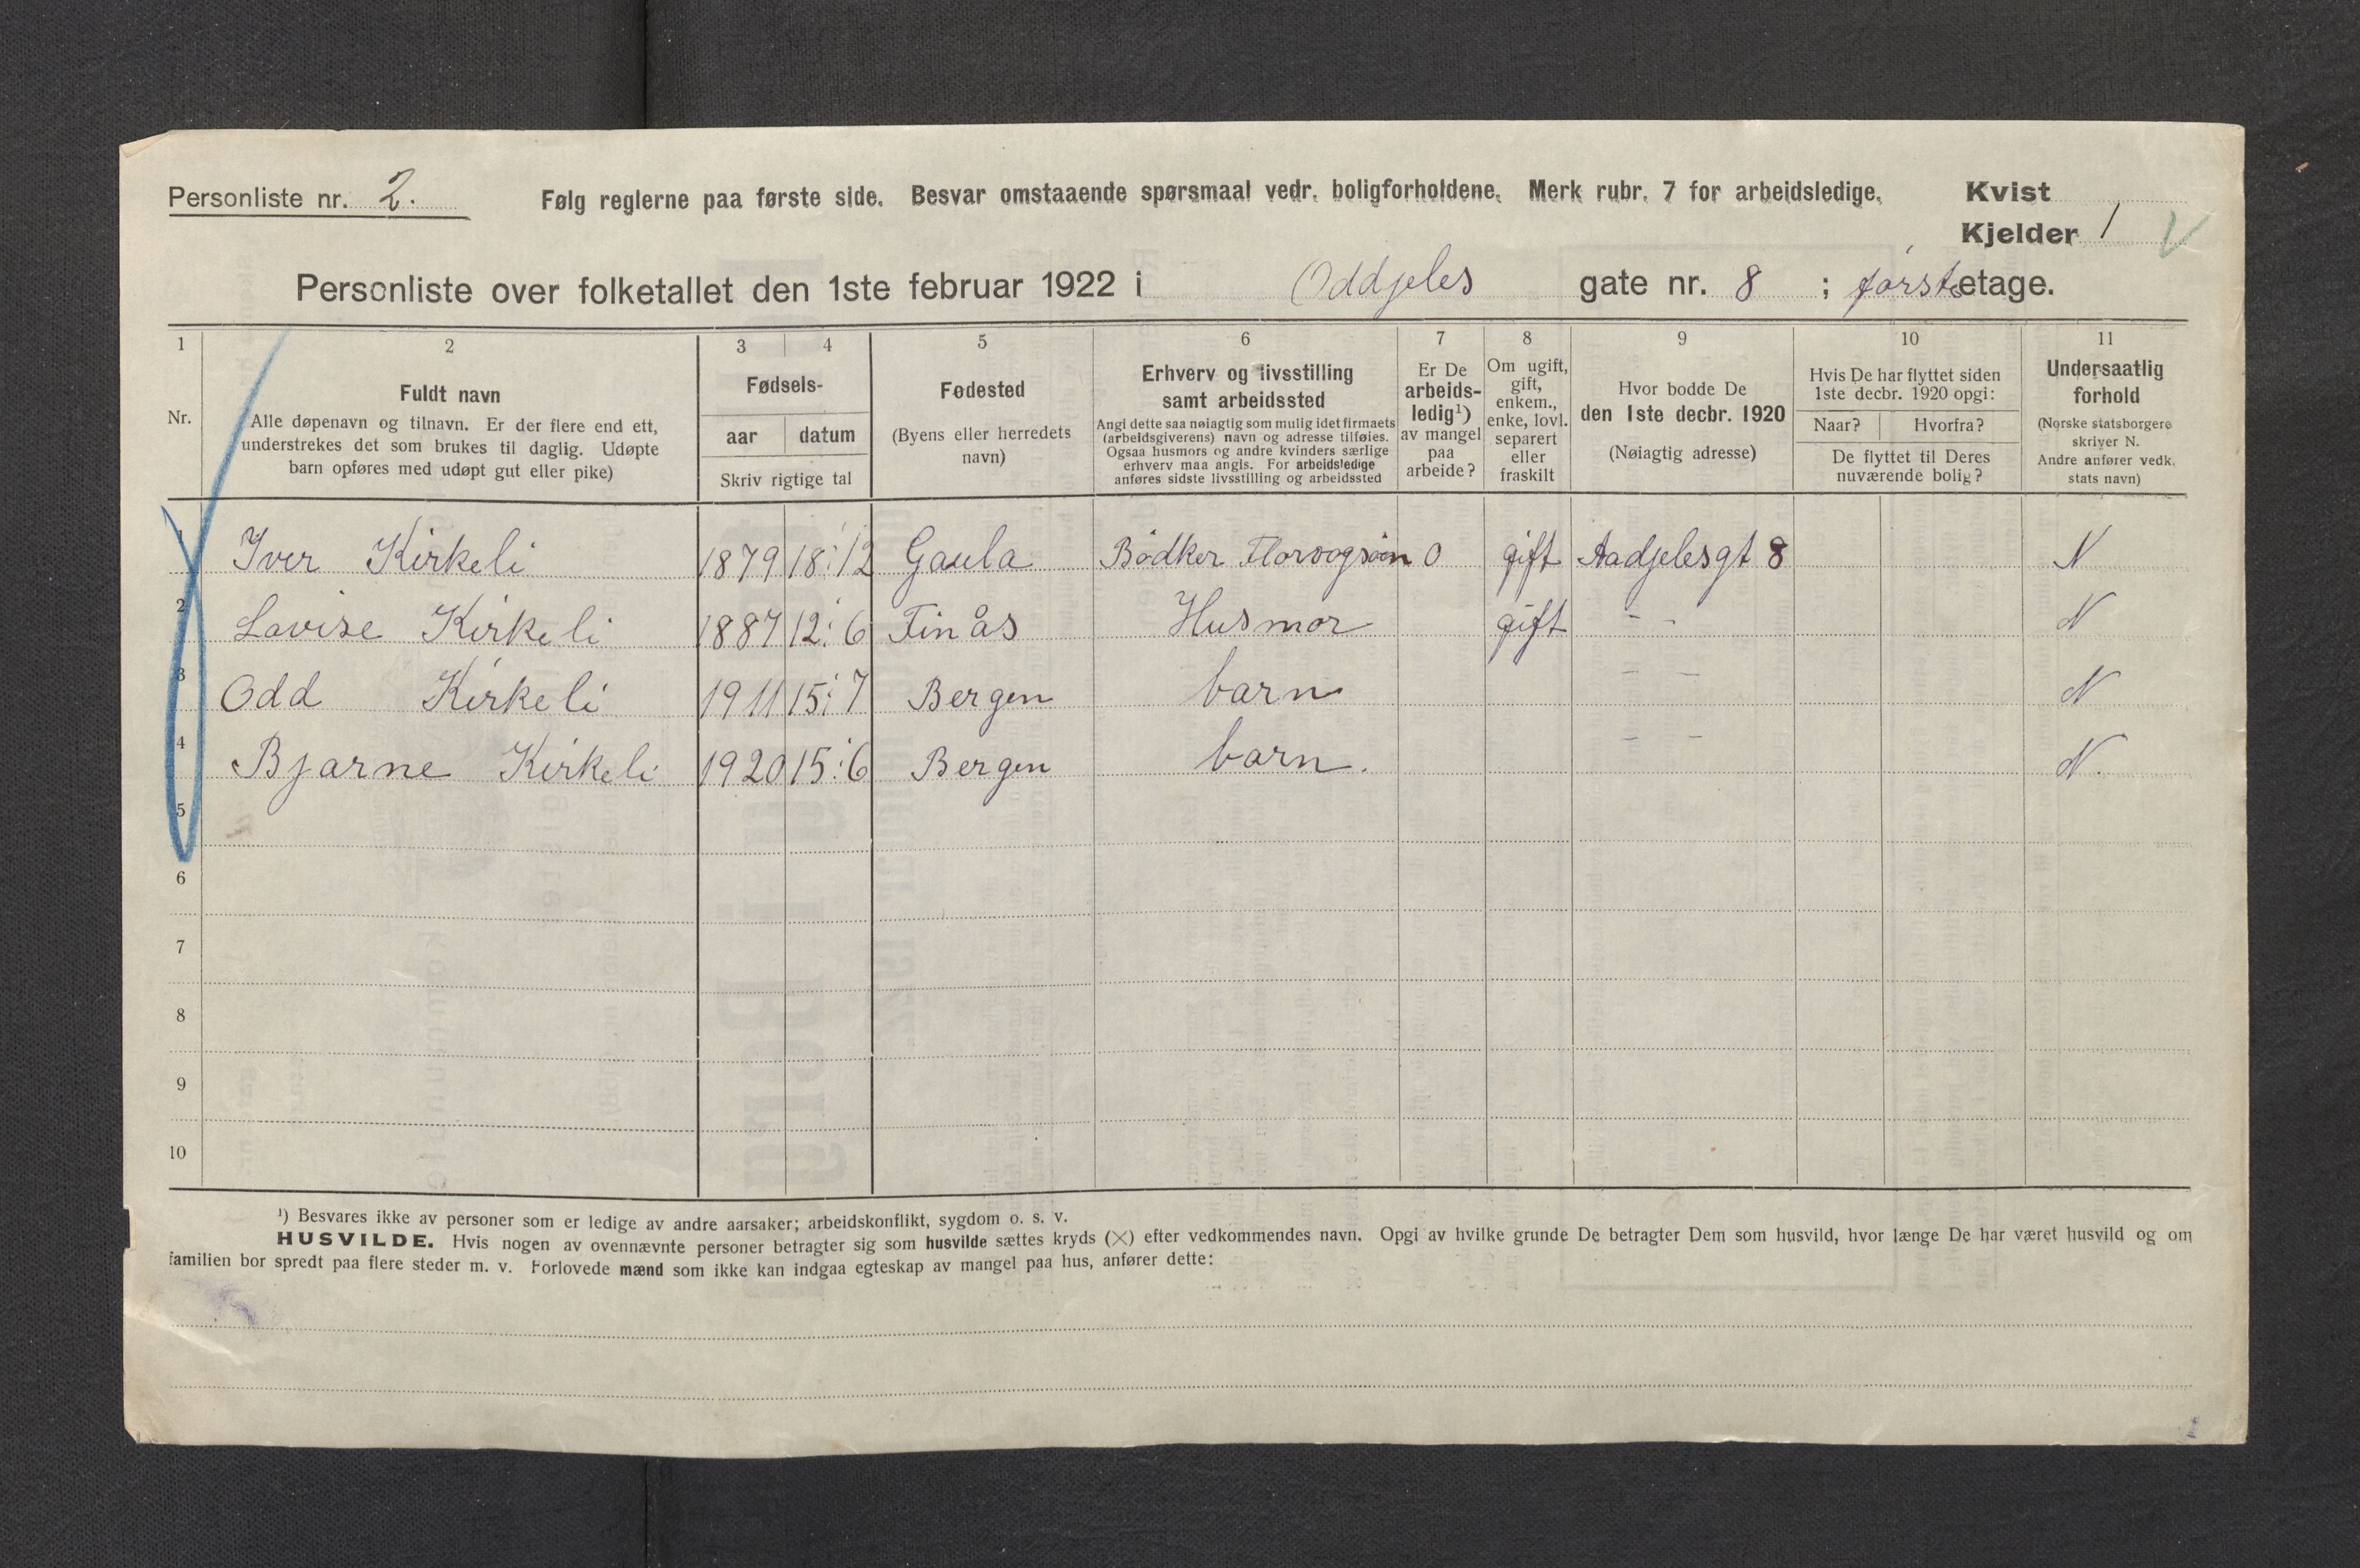 Personliste nr. 2. Følg reglerne paa første side. Besvar omstaaende spørsmaal vedr. boligforholdene. Merk rubr. 7 for arbeidsledige. Kvist
Kjelder 1
Personliste over folketallet den 1ste februar 1922 i Oddjeles gate nr. 8 ; første etage.
1 2 3 4 5 6 7 8 9 10 11
Nr.
Fuldt navn
Alle døpenavn og tilnavn. Er der flere end ett,
understrekes det som brukes til daglig. Udøpte
barn opføres med udøpt gut eller pike)
Fødsels-
aar datum
Skriv rigtige tal
Fødested
(Byens eller herredets
navn)
Erhverv og livsstilling
samt arbeidssted
Angi dette saa nøiagtig som mulig idet firmaets
(arbeidsgiverens) navn og adresse tilføies.
Ogsaa husmors og andre kvinders særlige
erhverv maa angis. For arbeidsledige
anføres sidste livsstilling og arbeidssted
Er De
arbeids-
ledig¹)
av mangel
paa
arbeide?
Om ugift,
gift,
enkem.,
enke, lovl.
separert
eller
fraskilt
Hvor bodde De
den 1ste decbr. 1920
(Nøiagtig adresse)
Hvis De har flyttet siden
1ste decbr. 1920 opgi:
Naar? Hvorfra?
De flyttet til Deres
nuværende bolig?
Undersaatlig
forhold
(Norske statsborgere
skriver N.
Andre anfører vedk.
stats navn)
1 Iver Kirkeli 1879 18:12 Gaula Bödker 0 gift Aadjelesgt 8 N
2 Lovise Kirkeli 1887 12: 6 Finås Husmor gift - - N
3 Odd Kirkeli 1911 15: 7 Bergen barn - - N
4 Bjarne Kirkeli 1920 15:6 Bergen barn. - - N.
5
6
7
8
9
10
¹) Besvares ikke av personer som er ledige av andre aarsaker; arbeidskonflikt, sygdom o. s. v.
HUSVILDE. Hvis nogen av ovennævnte personer betragter sig som husvilde sættes kryds (X) efter vedkommendes navn. Opgi av hvilke grunde De betragter Dem som husvild, hvor længe De har været husvild og om
familien bor spredt paa flere steder m. v. Forlovede mænd som ikke kan indgaa egteskap av mangel paa hus, anfører dette: